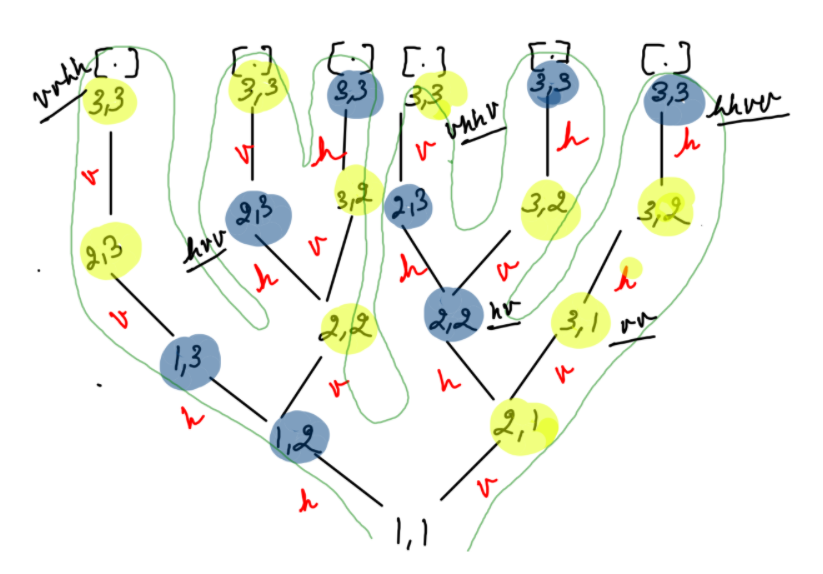 [.] [.] [.] [.] [.] [.]
vvhh 3,3 3,3 3,3 3,3 vhhv 3,3 3,3 hhvv
v v h v h h
2,3 hvv 2,3 3,2 2,3 3,2 3,2
v h v h v h
1,3 2,2 2,2 hv 3,1 vv
h v h v
1,2 2,1
h v
1,1